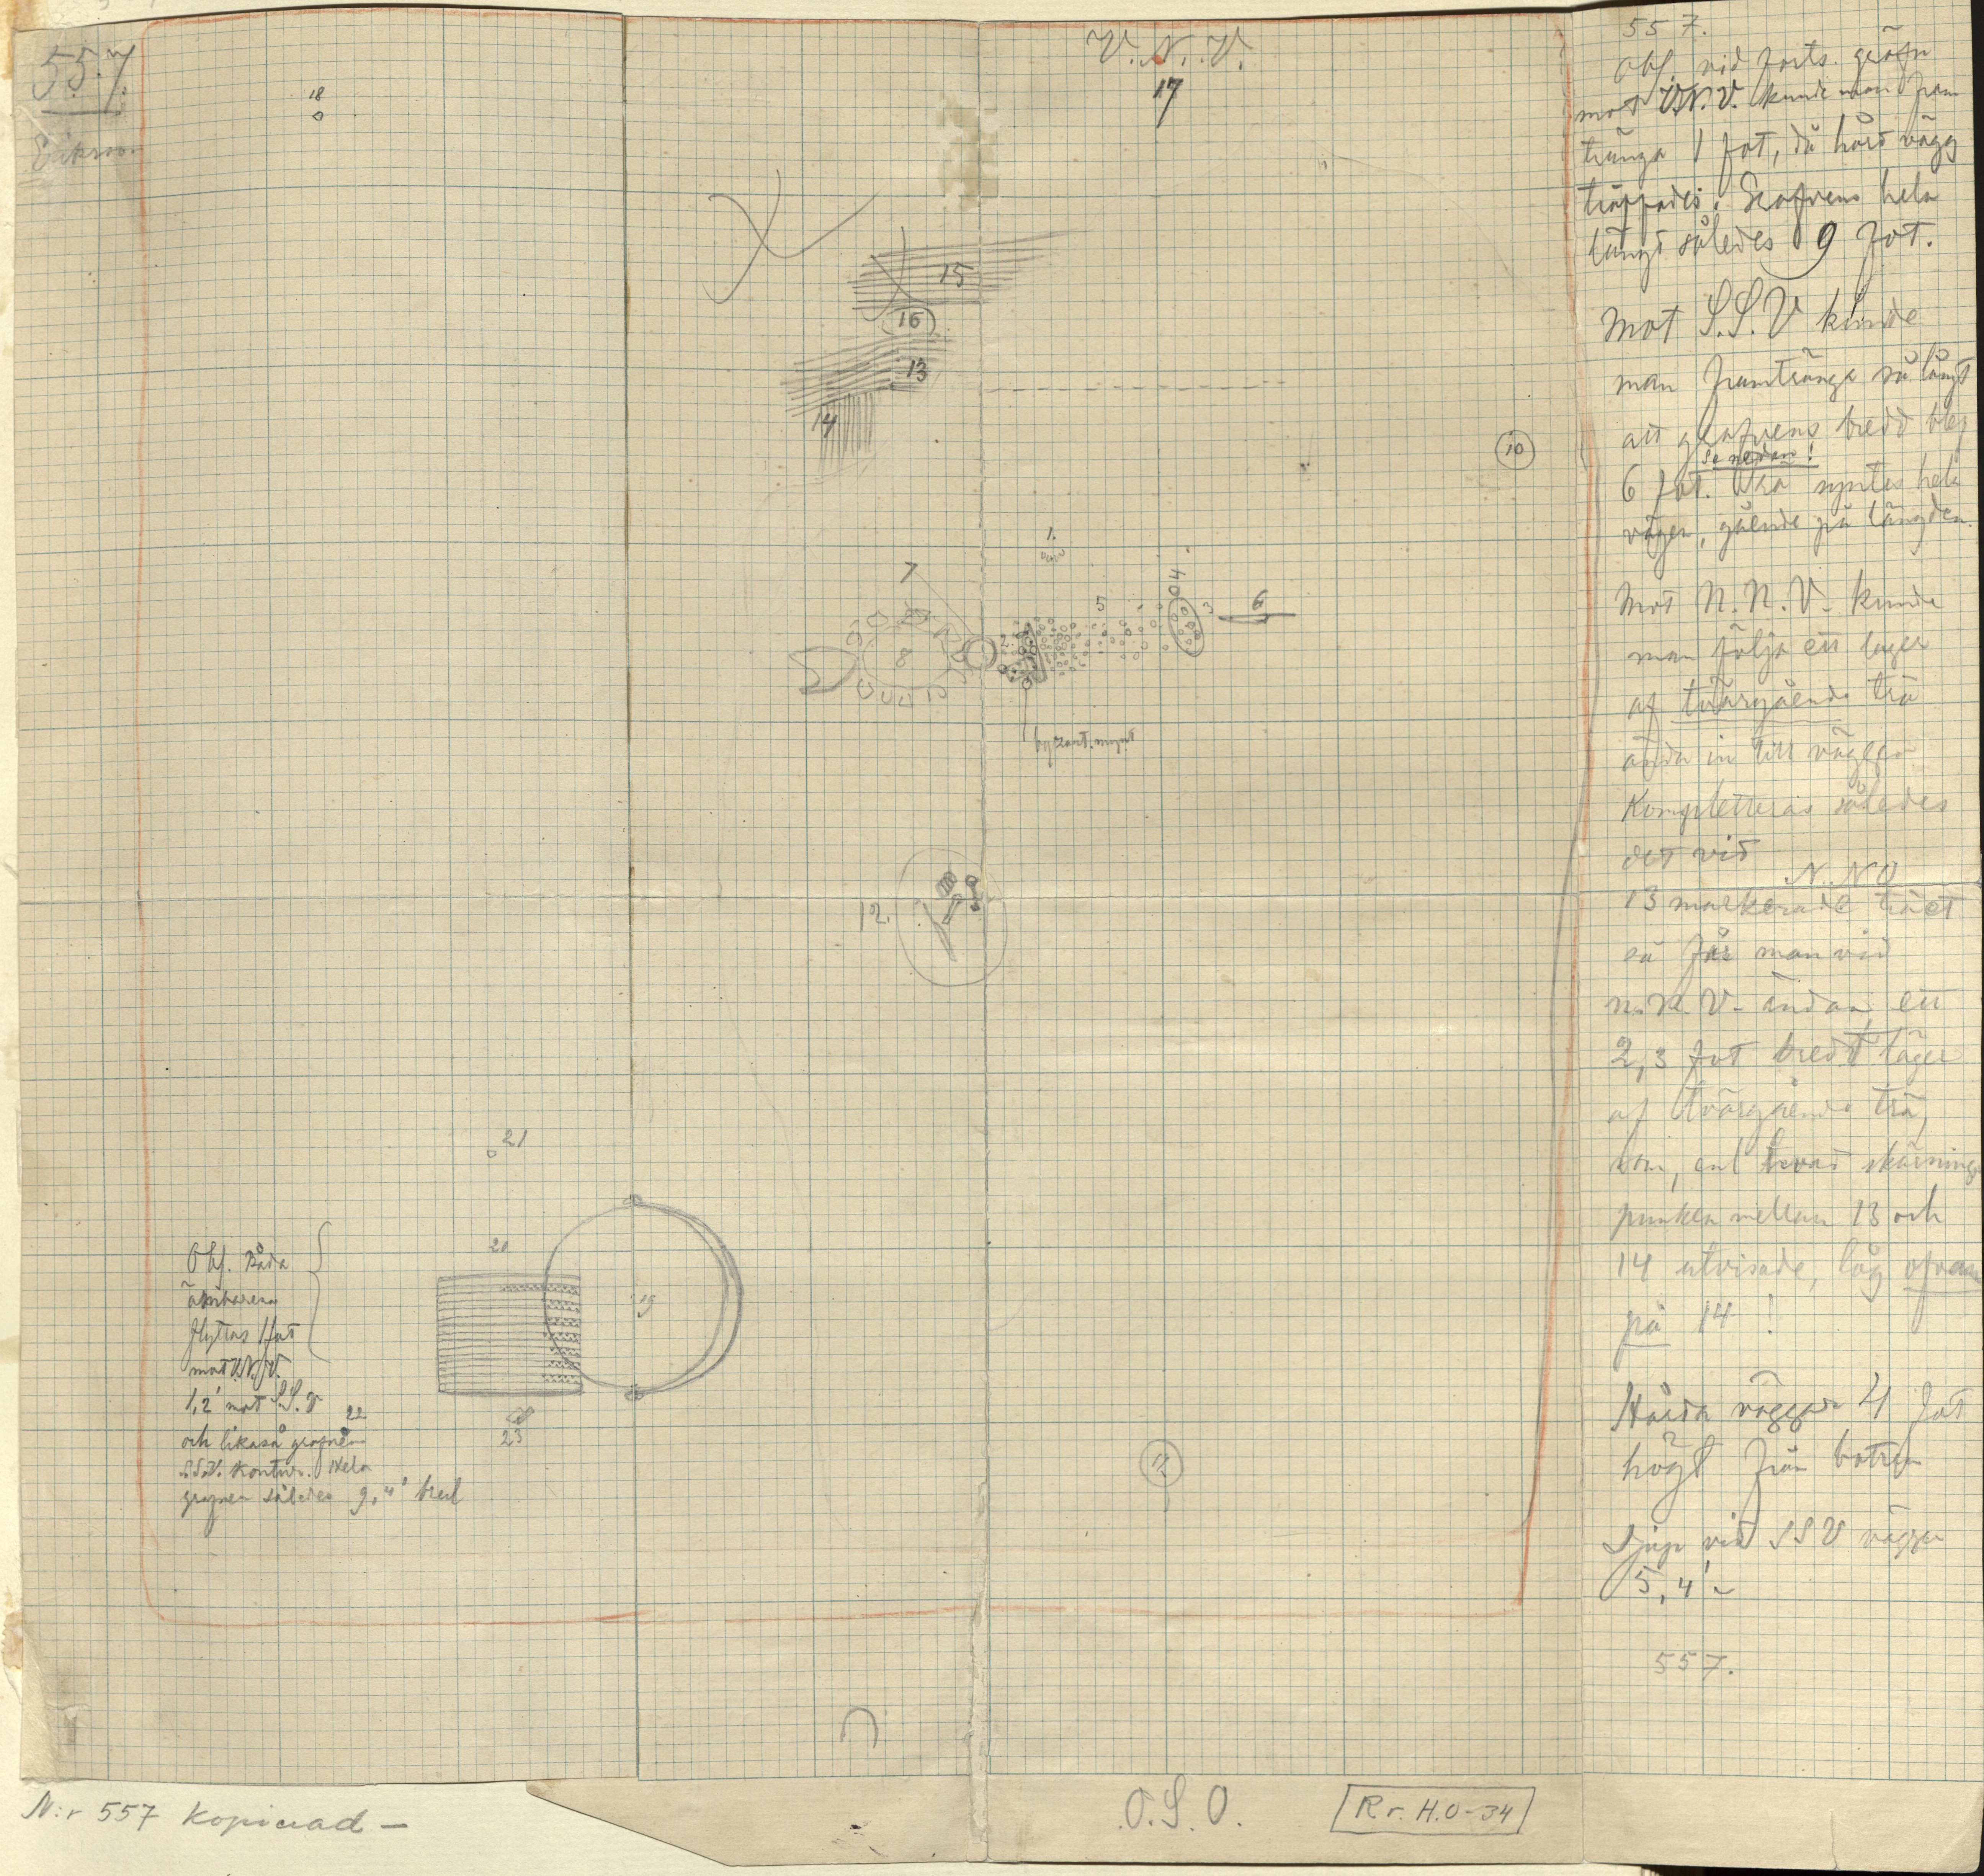 557.
18
V.N.V.
17
15
16
13
14
10
1.
7
5
4
3
6
2
8
byzant. mynt
12.
21
20
19
Obs. Båda
ämbaren
flyttas 1 fot
mot V.N.V.
1,2' mot S.S.V
22
och likaså grafven
S.S.V. kontur. Hela
grafven således 9,4' bred
23
12
557.
Obs. vid forts. gräfn
mot V.N.V. kunde man fram
tränga 1 fot, då hård vägg
träffades. Grafvens hela
längd således 9 fot.
Mot S.S.V kunde
man framtränga så långt
att grafvens bredd blef
se nedan!
6 fot. Trä syntes hela
vägen, gående på längden.
Mot N.N.V. kunde
man följa ett lager
af tvärgående trä
ända in till väggen
Kompletteras således
det vid N.NO
13 markerade träet
så får man vid
N.N.V. ändan ett
2,3 fot bredt lager
af tvärgående trä,
som, enl hvad skärnings
punkten mellan 13 och
14 utvisade, låg ofvan
på 14!
Hårda väggar 4 fot
högt från botten
Djup vid SSV väggen
5,4'
557.
N:r 557 kopierad –
O.S.O.
R r. H.O-34